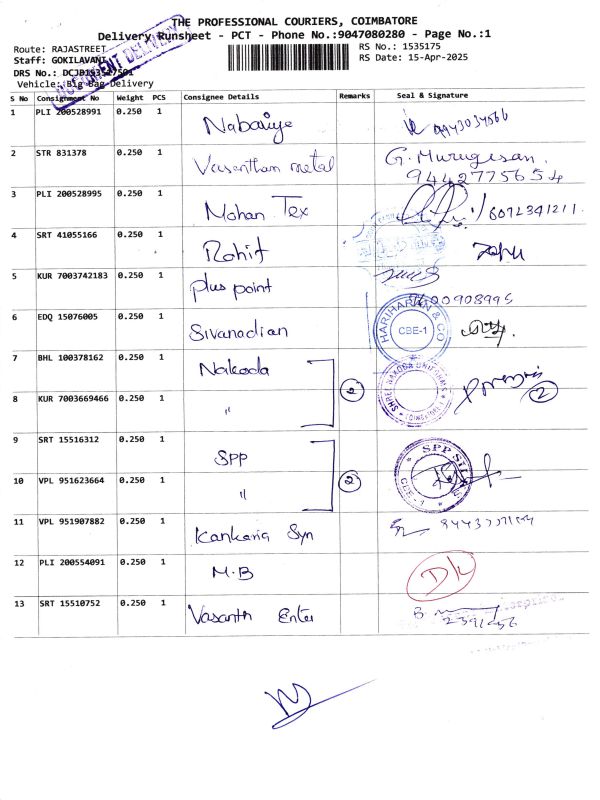 THE PROFESSIONAL COURIERS, COIMBATORE
Delivery Runsheet - PCT - Phone No.:9047080280 - Page No.:1
Route: RAJASTREET
RS No.: 1535175
Staff: GOKILAVANI
RS Date: 15-Apr-2025
DRS No.:
DOCUMENT DELIVERY
Vehicle:Big Bag Delivery
S No Consignment No Weight PCS Consignee Details Remarks Seal & Signature
1 PLI 200528991 0.250 1 Nabaiye 9943034566
2 STR 831378 0.250 1 Vasantham metal G. Murugesan.
9442775654
3 PLI 200528995 0.250 1 Mohan Tex
4 SRT 41055166 0.250 1 Rohit
5 KUR 7003742183 0.250 1 plus point
6 EDQ 15076005 0.250 1 Sivanadian HARIHARAN & CO CBE-1
7 BHL 100378162 0.250 1 Nakoda SHREE NAKODA UNIFORMS
8 KUR 7003669466 0.250 1 " 2 2
9 SRT 15516312 0.250 1 SPP SPP SILKS
10 VPL 951623664 0.250 1 " 2 CBE-1
11 VPL 951907882 0.250 1 Kankaria Syn
12 PLI 200554091 0.250 1 M.B
13 SRT 15510752 0.250 1 Vasanth Enter